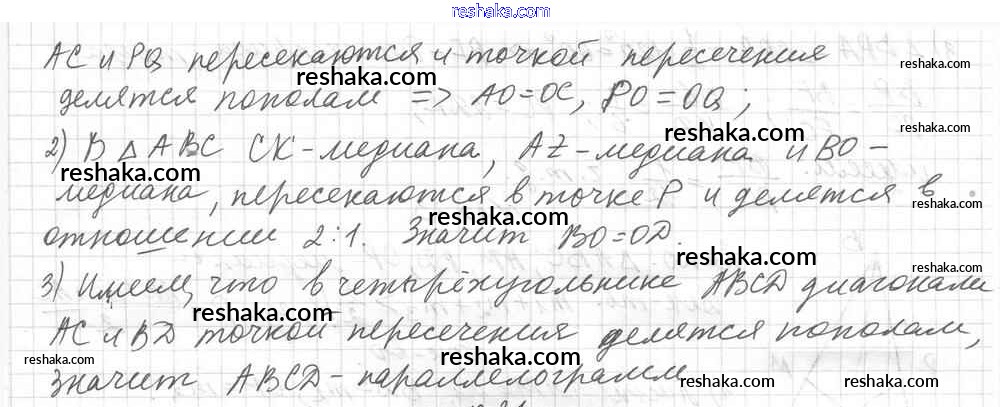 reshaka.com
AC и PQ пересекаются и точкой пересечения
reshaka.com
reshaka.com
делятся пополам => AO=OC, PO=OQ;
reshaka.com
2) В △ ABC CK-медиана, AZ-медиана и BO-
reshaka.com
reshaka.com
медиана, пересекаются в точке P и делятся в
reshaka.com
reshaka.com
отношении 2:1. Значит BO=OD.
reshaka.com
reshaka.com
3) Имеем, что в четырёхугольнике ABCD диагонали
reshaka.com
AC и BD точкой пересечения делятся пополам,
reshaka.com
reshaka.com
reshaka.com
значит ABCD-параллелограмм
reshaka.com
reshaka.com